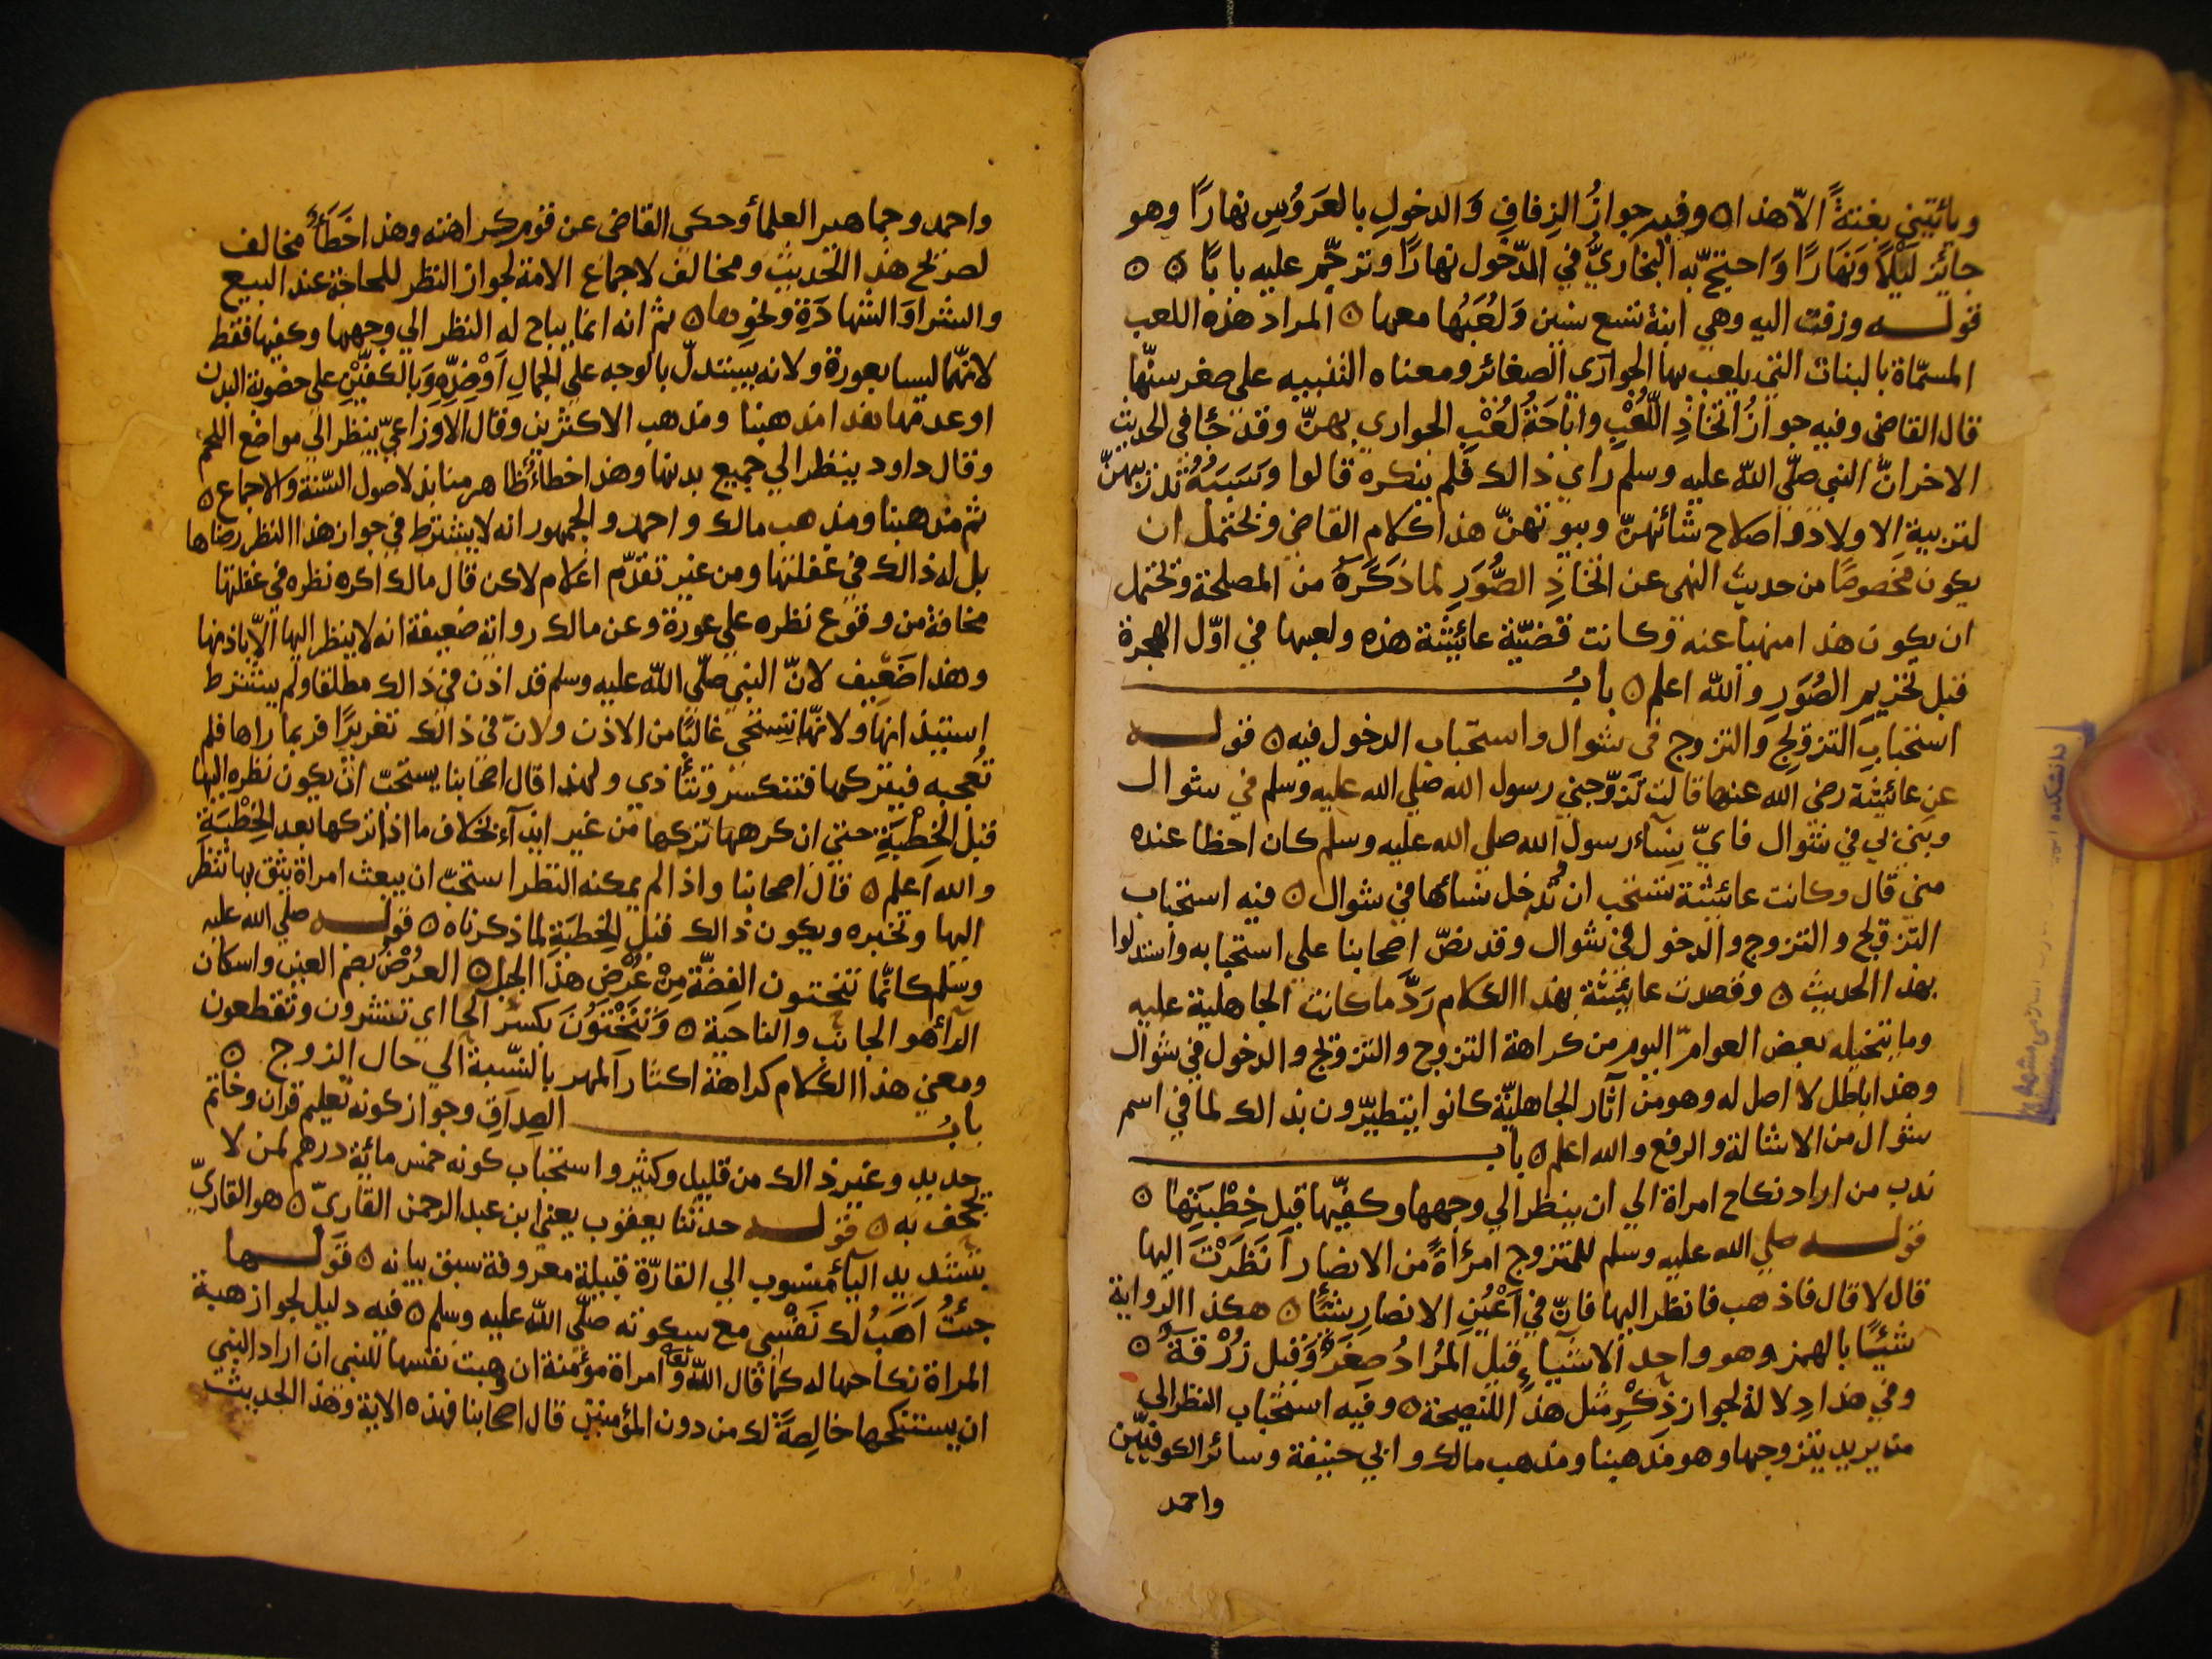 ويأتيني بغتةً الّا هذا ٥ وفيه جوازُ الزِفافِ وَالدخولِ بالعَرُوسِ نهارًا وهو
جائز لَيْلًا وَنَهَارًا وَاحتجّ به البخاريُّ في الدّخول نهارًا وترجّم عليه بابًا ٥ ٥
قوله وزفت اليه وهي ابنة تسع سنين وَلُعَبُها معها ٥ المراد هذه اللعب
المسمّاة بالبنات التي يلعب بها الجوارَي الصغائر ومعناه التنبيه على صغر سنّها
قال القاضي وفيه جوازُ اتخاذِ اللُّعَبِ واباحَةُ لُعَبِ الجواري بهنّ وقد جَا في الحديث
الاخر انّ النبي صلّى الله عليه وسلم راي ذالك فلم ينكره قالوا وَسَبَبَهُ تدرّبهنّ
لتربية الاولاد واصلاح شأنهنّ وبيوتهنّ هذا كلام القاضي ويحتمل ان
يكون مخصوصًا من حديث النهى عن اتخاذِ الصُّوَرِ لما ذكَرَهُ من المصلحة ويحتمل
ان يكون هذا منهيا عنه وكانت قضيّة عائيشة هذه ولعبها في اوّل الهجرة
قبل تحريمِ الصُوَرِ والله اعلم ٥ بابُ
استحبابِ التزويج والتزوج في شوال واستحباب الدخول فيه ٥ قوله
عن عائيشة رضي الله عنها قالت تزوّجني رسول الله صلي الله عليه وسلم في شوال
وبنى بي في شوال فايّ نِساء رسول الله صلي الله عليه وسلم كان احظا عنده
منى قال وكانت عائيشة تستحب ان تُدخل نساءها في شوال ٥ فيه استحباب
التزويج والتزوج والدخول في شوال وقد نصّ اصحابنا على استحبابه واستدلوا
بهذا الحديث ٥ وقصدت عائيشة بهذا الكلام رَدَّ ما كانت الجاهلية عليه
وما يتخيله بعض العوامّ اليوم من كراهة التزوج والتزويج والدخول في شوال
وهذا باطل لا اصل له وهو من آثار الجاهليّة كانوا يتطيّرون بذالك لما في اسم
شوال من الاشالة والرفع والله اعلم ٥ باب
ندب من اراد نكاح امراة الي ان ينظر الي وجهها وكفيّها قبل خِطْبَتِهَا ٥
قوله صلي الله عليه وسلم للمتزوج امرأةً من الانصار اَنَظَرْتَ اليها
قال لا قال فاذهب فانظر اليها فانّ في اَعْيُنِ الانصارِ شَيْئًا ٥ هكذا الرواية
شيئًا بالهمز وهو واحد الاشياءِ قيل المُرادُ صِغَرٌ وَقيل زُرْقَةٌ ٥
وفي هذا دِلالة لجواز ذِكْرِ مثل هذا للنصيحة ٥ وفيه استحْباب النظر الي
من يريد يتزوجها وهو مذهبنا ومذهب مالك وابي حنيفة وسائر الكوفيّين
واحمد
واحمد وجماهير العلماء وحكى القاضى عن قوم كراهته وهذا خَطَأٌ مخالف
لصريح هذا الحديث ومخالف لاجماع الامة لجواز النظر للحاجة عند البيع
والشرا وَالشهادَةِ ونحوِها ٥ ثم انه انما يباح له النظر الي وجهها وكفيها فقط
لانّهما ليسا بعورة ولانه يستدلّ بالوجه على الجمالِ اَوْ ضِدِّهِ وَبالكفَّيْنِ على خصوبة البدن
او عدمها هذا مذهبنا ومذهب الاكثرين وقال الاوزاعيّ ينظر الى مواضع اللحم
وقال داود ينظر الي جميع بدنها وهذا خطاءٌ ظاهر منابذ لاصول السّنة والاجماع ٥
ثم مذهبنا ومذهب مالك واحمد والجمهور انه لا يشترط في جواز هذا النظر رضاها
بل له ذالك في غفلتها ومن غير تقدّم اعلام لاكن قال مالك اكره نظره في غفلتها
مخافة من وقوع نظره على عورة وعن مالك رواية ضعيفة انه لا ينظر اليها الّا باذنها
وهذا ضَعِيف لانّ النبي صلّي الله عليه وسلم قد اذن في ذالك مطلقا ولم يشترط
استيذانها ولانّها تستحي غالبًا من الاذن ولانّ في ذالك تغريرًا فربما راها فلم
تُعجبه فيتركها فتنكسر وتتأذي ولهذا قال اصحابنا يستحبّ انْ يكون نظره اليها
قبل الخِطْبَةِ حتي ان كرهها تركها من غير ايذآء بخلاف ما اذا تركها بعد الخِطْبَةِ
والله اعلم ٥ قال اصحابنا واذا لم يمكنه النظر استحبّ ان يبعث امراة يثق بها تنظر
اليها وتخبره ويكون ذالك قبل الخِطبَةِ لما ذكرناه ٥ قوله صلي الله عليه
وسلم كانّما تنحتون الفِضّة مِنْ عُرْضِ هذا الجبل ٥ العرُضْ بضم العين واسكان
الراء هو الجانب والناحية ٥ وَتَنْحِتُوَنَ بكسر الحا اي تنشرون وتقطعون
ومعني هذا الكلام كراهة اكثار المهر بالنسّبة الي حال الزوج ٥
بابُ الصِداقِ وجواز كونه تعليم قران وخاتم
حديد وغير ذالك من قليل وكثير واستحباب كونه خمس مائة درهم لمن لا
يجحف به ٥ قوله حدثنا يعقوب يعني ابن عبد الرحمن القاريّ ٥ هو القاريّ
بتشديد اليآء منسوب الي القارّة قبيلة معروفة سبق بيانه ٥ قولها
جئتُ اَهَبُ لك نَفْسي مع سكوته صلّي الله عليه وسلم ٥ فيه دليل لجواز هبة
المراة نكاحها له كما قال الله تعالى وامراة مؤمنة ان وهبت نفسها للنبى ان اراد النبي
ان يستنكحها خالِصَةً لك من دون المؤمنين قال اصحابنا فهذه الاية وهذا الحديث